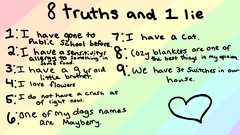 8 truths and 1 lie
1: I have gone to
public school before.
2: I have a sensitivity/
allergy to something in
some food.
3: I have a 3 yr old
little brother.
4: I love flowers
5: I do not have a crush as
of right now.
6: One of my dogs names
are Mayberry.
7: I have a cat.
8: Cozy blankets are one of
the best things in my opinion
9: We have 3+ Switches in our
house.